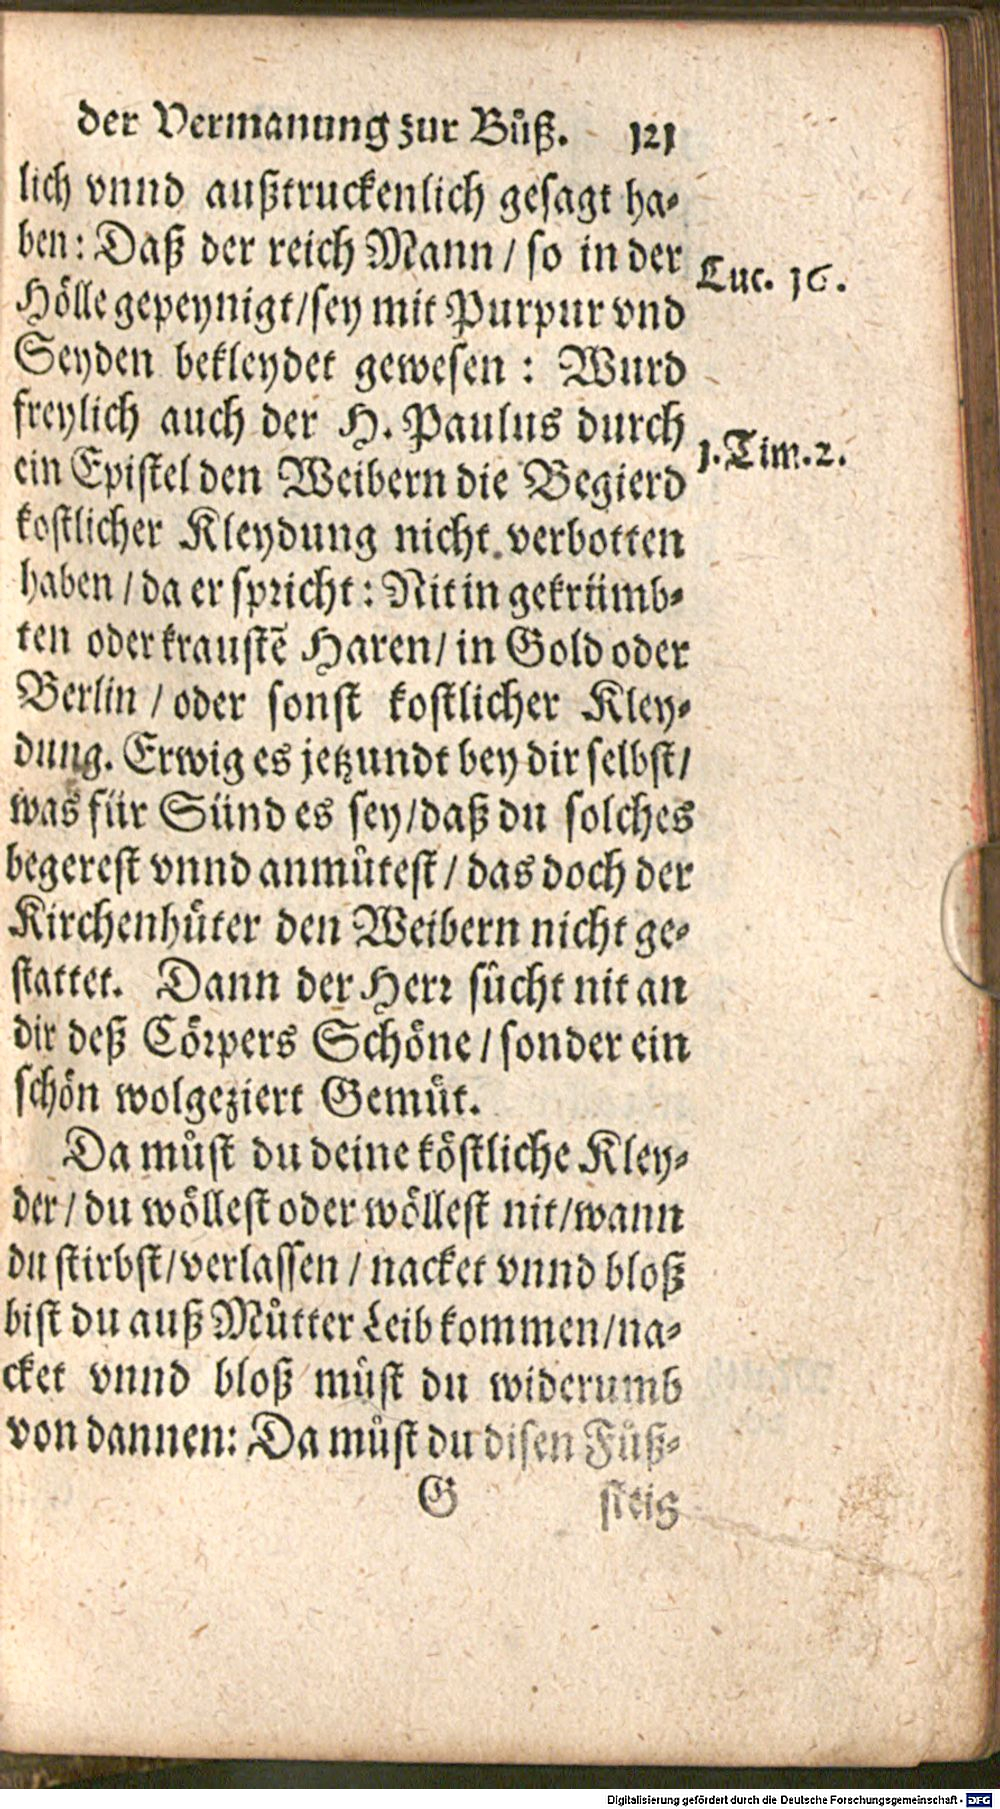 der Vermanung zur Bůß. 121
lich vnnd außtruckenlich gesagt ha-
ben: Daß der reich Mann / so in der
Hölle gepeynigt/sey mit Purpur vnd
Seyden bekleydet gewesen: Wurd
freylich auch der H. Paulus durch
ein Epistel den Weibern die Begierd
kostlicher Kleydung nicht verbotten
haben / da er spricht: Nit in gekrümb-
ten oder kraustẽ Haren/ in Gold oder
Berlin / oder sonst kostlicher Kley-
dung. Erwig es jetzundt bey dir selbst/
was für Sünd es sey/daß du solches
begerest vnnd anmůtest / das doch der
Kirchenhüter den Weibern nicht ge-
stattet. Dann der Herr sůcht nit an
dir deß Cörpers Schöne / sonder ein
schön wolgeziert Gemüt.
Da můst du deine köstliche Kley-
der/ du wöllest oder wöllest nit/wann
du stirbst/verlassen / nacket vnnd bloß
bist du auß Můtter Leib kommen/na-
cket vnnd bloß můst du widerumb
von dannen: Da můst du disen Fůß-
G steig
Luc. 16.
1. Tim. 2.
Digitalisierung gefördert durch die Deutsche Forschungsgemeinschaft - DFG